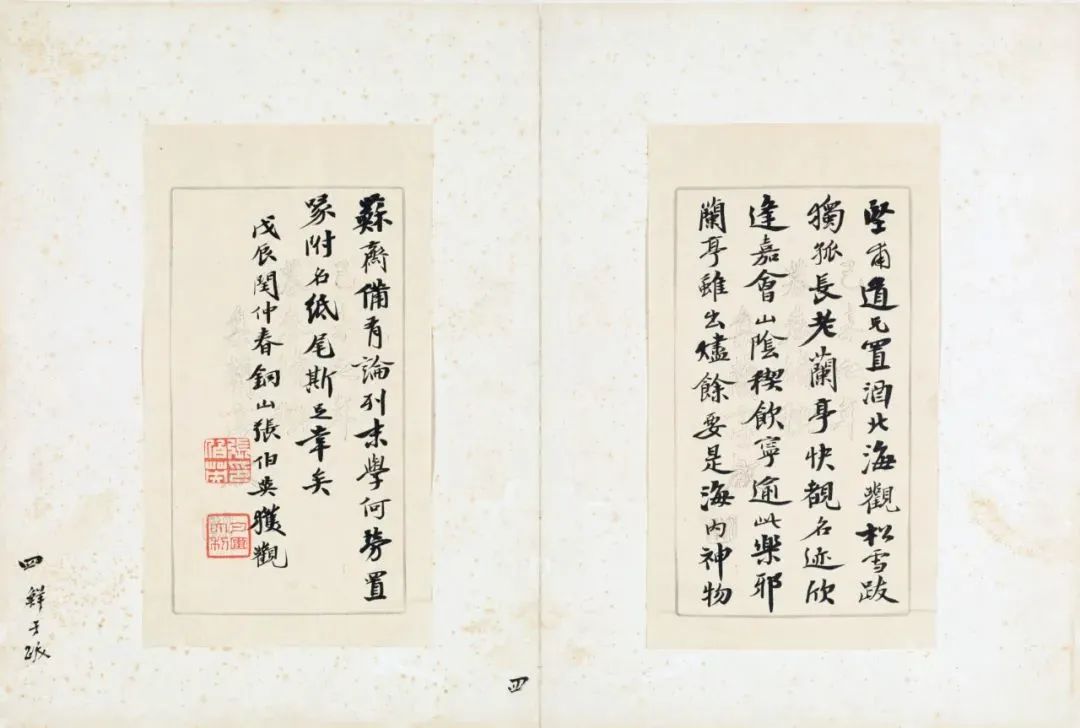 堅甫道兄置酒北海觀松雪跋
獨孤長老蘭亭快覩名迹欣
逢嘉會山陰稧飲寧逾此樂邪
蘭亭雖出燼餘要是海内神物
蘇齋備有論列末學何勞置
喙附名紙尾斯足幸矣
戊辰閏仲春銅山張伯英獲觀
張伯英
四
四 鮮于跋